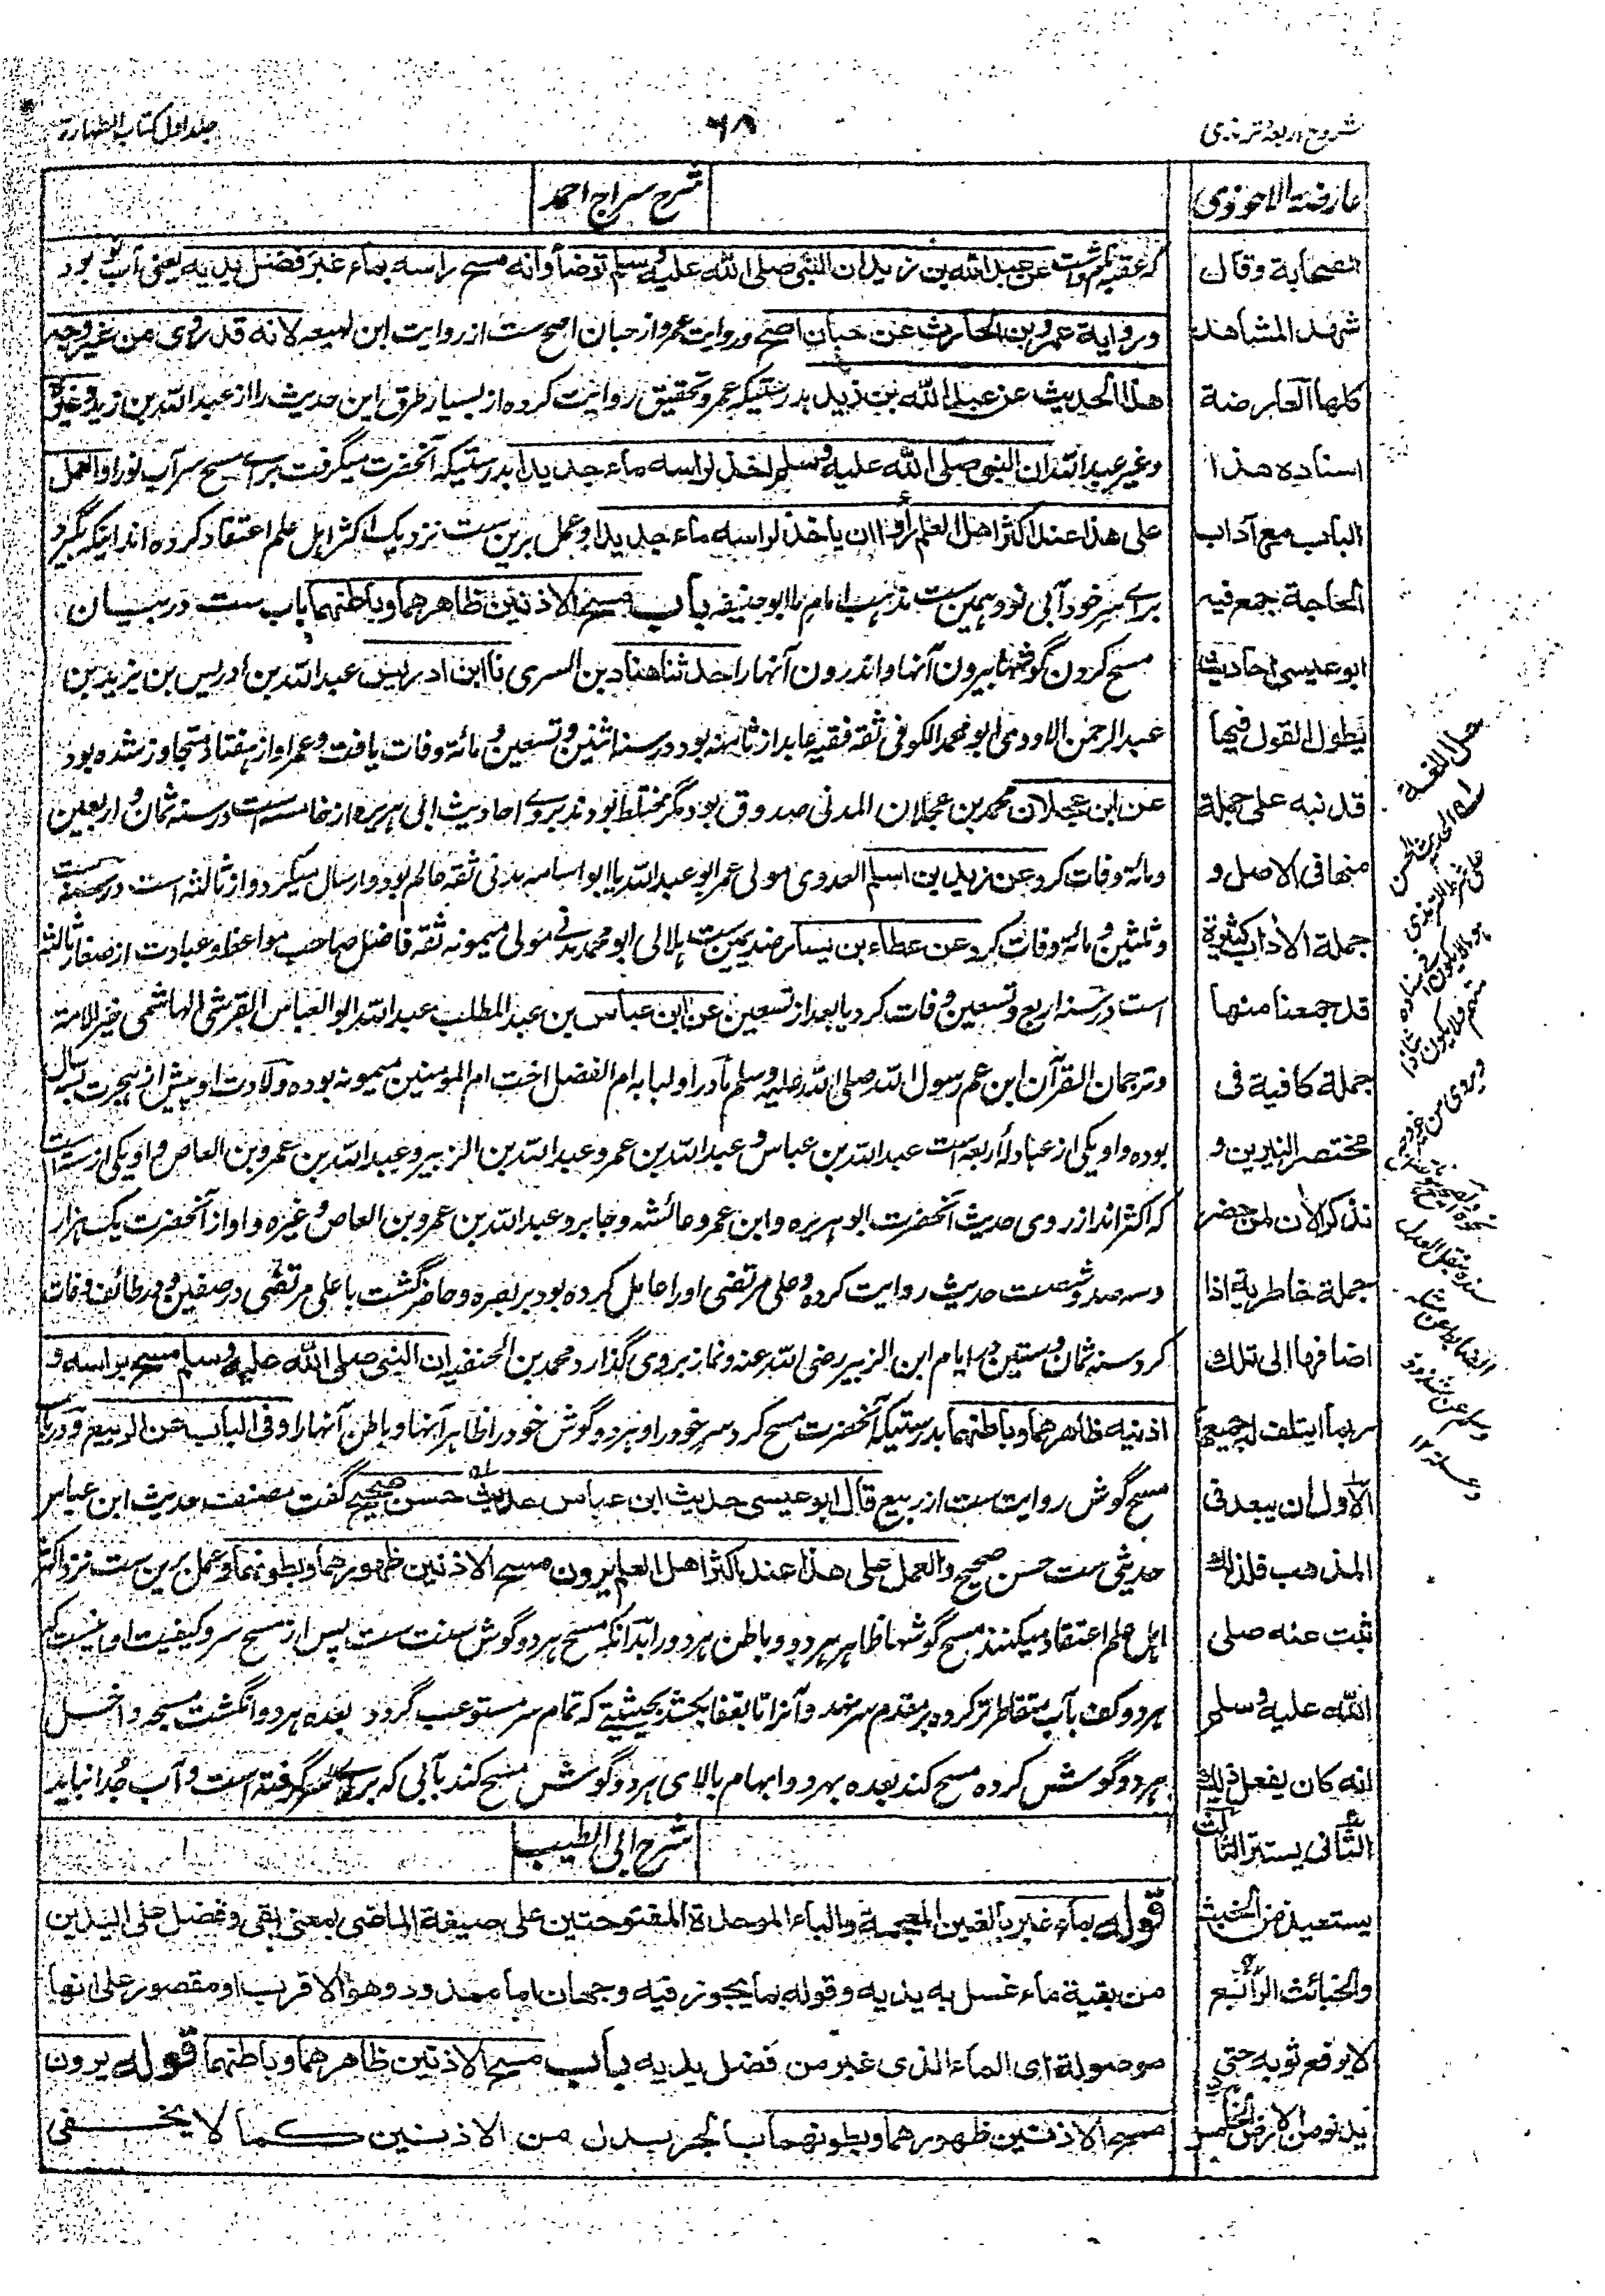 شروح اربعه ترمذی
۶۸
جلد اول کتاب الطهارة
عارضة الاحوذی
الصحابة وقال
شهد المشاهد
كلها العارضة
اسناده هذا
الباب مع آداب
الحاجة جمع فيه
ابو عيسى احاديث
يطول القول فيها
قد نبه على جملة
منها فى الاصل و
جملة الاداب كثيرة
قد جمعنا منها
جملة كافية فى
مختصر النيرين و
نذكر الان لمن حضر
جملة خاطرية اذا
اضافها الى تلك
ربما ايتلف له جميعها
الاول ان يبعد فى
المذهب فلذلك
ثبت عنه صلى
الله عليه وسلم
انه كان يفعل ذلك
الثانى يستتر الثالث
يستعيذ من الخبث
والخبائث الرابع
لا يرفع ثوبه حتى
يدنو من الارض الخامس
شرح سراج احمد
كه عقبه عن عبد الله بن زيد ان النبى صلى الله عليه وسلم توضأ وانه مسح راسه بماء غبر فضل يديه يعنى آب بود
ورواية عمرو بن الحارث عن حبان اصح وروايت عمرو از حبان اصح ست از روايت ابن لهيعه لانه قد روى من غير وجه
هذا الحديث عن عبد الله بن زيد بدرستيكه عمرو بتحقيق روايت كرده از بسيار طرق اين حديث را از عبد الله بن زيد وغيره
وغير عبد الله ان النبى صلى الله عليه وسلم اخذ لراسه ماء جديدا بدرستيكه آنحضرت ميگرفت براے مسح سر آب نو را والعمل
على هذا عند اكثر اهل العلم رأوا ان ياخذ لراسه ماء جديدا وعمل برين ست نزديك اكثر اهل علم اعتقاد كرده اند اينكه بگيرد
براے سر خود آبى نو وهمين ست مذهب امام ما ابو حنيفه باب مسح الاذنين ظاهرهما وباطنهما باب ست در بيان
مسح كردن گوشها بيرون آنها واندرون آنها را حدثنا هناد بن السرى نا ابن ادريس عبد الله بن ادريس بن يزيد بن
عبد الرحمن الاودى ابو محمد الكوفى ثقه فقيه عابد از ثامنه بود در سنه اثنين وتسعين ومائة وفات يافت وعمر او از هفتاد متجاوز شده بود
عن ابن عجلان محمد بن عجلان المدنى صدوق بود مگر مختلط بودند بروے احاديث ابى هريره از خامسه است در سنه ثمان واربعين
ومائة وفات كرد عن زيد بن اسلم العدوى مولى عمر ابو عبد الله يا ابو اسامه مدنى ثقه عالم بود وارسال ميكرد واز ثالثه است در سنه ست
وثلثين ومائة وفات كرد عن عطاء بن يسار هلالى ابو محمد مدنے مولى ميمونه ثقه فاضل صاحب مواعظ وعبادت از صغار ثالثه
است در سنه اربع وتسعين وفات كرد يا بعد از تسعين عن ابن عباس بن عبد المطلب عبد الله ابو العباس القرشى الهاشمى خير الامة
وترجمان القرآن ابن عم رسول الله صلى الله عليه وسلم مادر او لبابه ام الفضل اخت ام المومنين ميمونه بوده وولادت او پيش از هجرت بسه سال
بوده واو يكى از عبادلۀ اربعه است عبد الله بن عباس وعبد الله بن عمر وعبد الله بن الزبير وعبد الله بن عمرو بن العاص واو يكى از
كه اكثر اند از روى حديث آنحضرت ابو هريره وابن عمر وعائشه وجابر وعبد الله بن عمرو بن العاص وغيره واو از آنحضرت يك هزار
وسه صد وشصت حديث روايت كرده وعلى مرتضى او را عامل كرده بود بر بصره وحاضر گشت با على مرتضى در صفين ودر طائف وفات
كرد سنه ثمان وستين در ايام ابن الزبير رضى الله عنه ونماز بروى گذارد محمد بن الحنفيه ان النبى صلى الله عليه وسلم مسح براسه و
اذنيه ظاهرهما وباطنهما بدرستيكه آنحضرت مسح كرد سر خود را وهر دو گوش خود را ظاهر آنها وباطن آنها را وفى الباب عن الربيع ودر باب
مسح گوش روايت ست از ربيع قال ابو عيسى حديث ابن عباس حديث حسن صحيح گفت مصنف حديث ابن عباس
حديثى ست حسن صحيح والعمل على هذا عند اكثر اهل العلم يرون مسح الاذنين ظهورهما وبطونهما وعمل برين ست نزد اكثر
اهل علم اعتقاد ميكنند مسح گوشها ظاهر هر دو وباطن هر دو را بدانكه مسح هر دو گوش سنت ست پس از مسح سر وكيفيت او اينست كه
هر دو كف بآب متقاطر تر كرده بر مقدم سر نهد وآنرا تا بقفا بكشد بحيثيتے كه تمام سر مستوعب گردد بعده هر دو انگشت مسبحه داخل
هر دو گوش كرده مسح كند بعده بهر دو ابهام بالاى هر دو گوش مسح كند بآبى كه براے سر گرفته است وآب جدا نبايد
شرح ابى الطيب
قوله بماء غبر بالغين المعجمة والباء الموحدة المفتوحتين على صيغة الماضى بمعنى بقى وفضل على اليدين
من بقية ماء غسل به يديه وقوله بما يجوز فيه وجهان اما ممدود وهو الاقرب او مقصور على انها
موصولة اى الماء الذى غبر من فضل يديه باب مسح الاذنين ظاهرهما وباطنهما قوله يرون
مسح الاذنين ظهورهما وبطونهما بالجر بدل من الاذنين كما لا يخفى